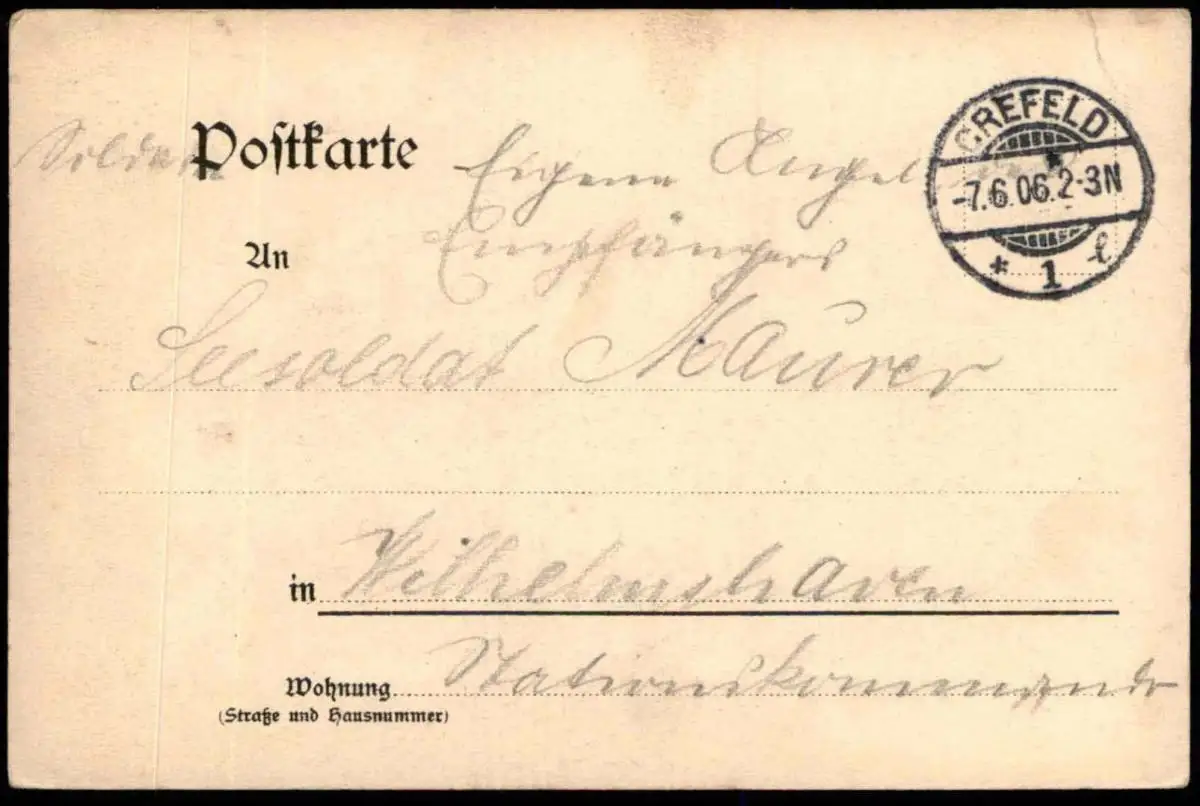 CREFELD
-7.6.06.2-3N
* 1 l
Postkarte Eigene
An Empfängers
Seesoldat Maurer
in Wilhelmshaven
Wohnung Stationskommando
(Straße und Hausnummer)